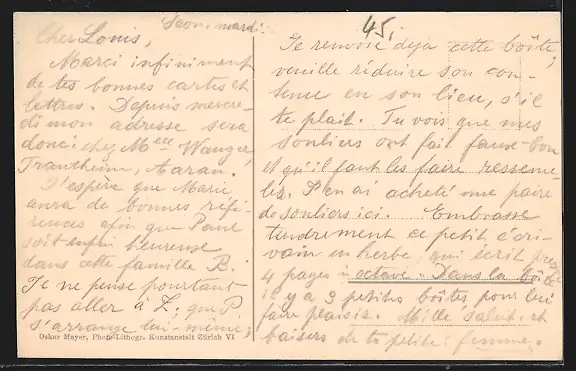 Seon, mardi.
45.
Cher Louis,
Marci infiniment
de tes bonnes cartes et
lettres. Depuis mercre-
di mon adresse sera
donc: chez Mee Wanger,
Trantheim, Aarau.
J'espère que Marie
aura de bonnes réfé-
rences afin que Paul
soit enfin heureuse
dans cette famille B.
Je ne pense pourtant
pas aller à Z; que P.
s'arrange lui-même;
Oskar Mayer, Photo-Lithogr. Kunstanstalt Zürich VI
Je renvoie déjà cette boîte,
veuille réduire son con-
tenu en son lieu, s'il
te plait. Tu vois que mes
souliers ont fait faux-bon
et qu'il faut les faire resseme-
ler. J'en ai acheté une paire
de souliers ici. Embrasse
tendrement ce petit écri-
vain en herbe, qui écrit
4 pages octave. Dans la boîte
il y a 3 petites boîtes pour lui
faire plaisir. Mille saluts et
baisers de ta petite femme.